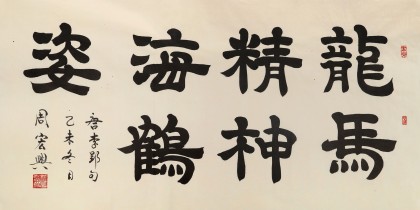 龍馬
精神
海鶴
姿
唐李郢句
乙未冬日
周宏興